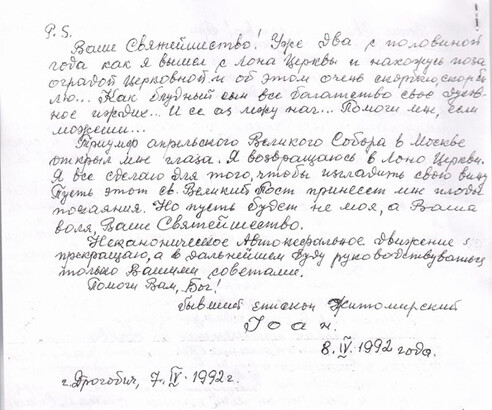 P.S.
Ваше Святейшество! Уже два с половиной
года как я вышел с Лона Церквы и нахожусь поза
оградой Церковной и об этом очень скорблю
лю... Как блудный сын все богатство своё духов-
ное иждих... И се аз лежу наг... Помоги мне, если
можеш...
Триумф апрельского Великого Собора в Москве
открыл мне глаза. Я возвращаюсь в Лоно Церкви.
Я все сделаю для того, чтобы изгладить свою вину
Пусть этот св. Великий Пост принесет мне плоды
покаяния. Но пусть будет не моя, а Ваша
воля, Ваше Святейшество.
Неканоническое Автокефальное движение я
прекращаю, а в дальнейшем буду руководствуваться
только Вашими советами.
Помоги Вам, Бог!
бывший епископ Житомирский
Іоан.
8.IV.1992 года.
г. Дрогобич, 7.IV.1992 г.